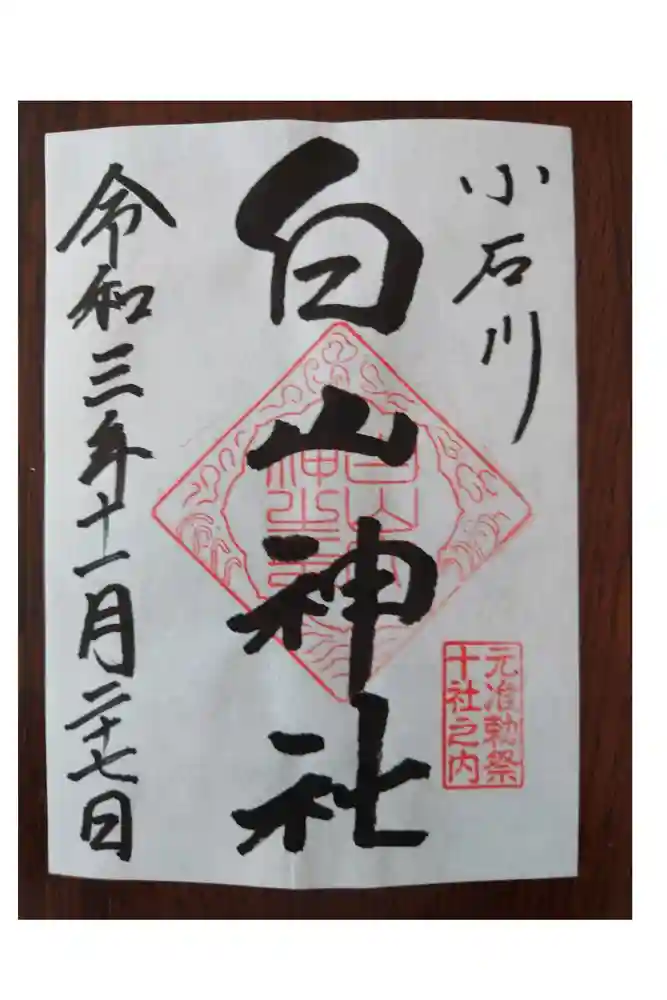 小石川
白山神社
元准勅祭
十社之内
令和三年十一月二十七日